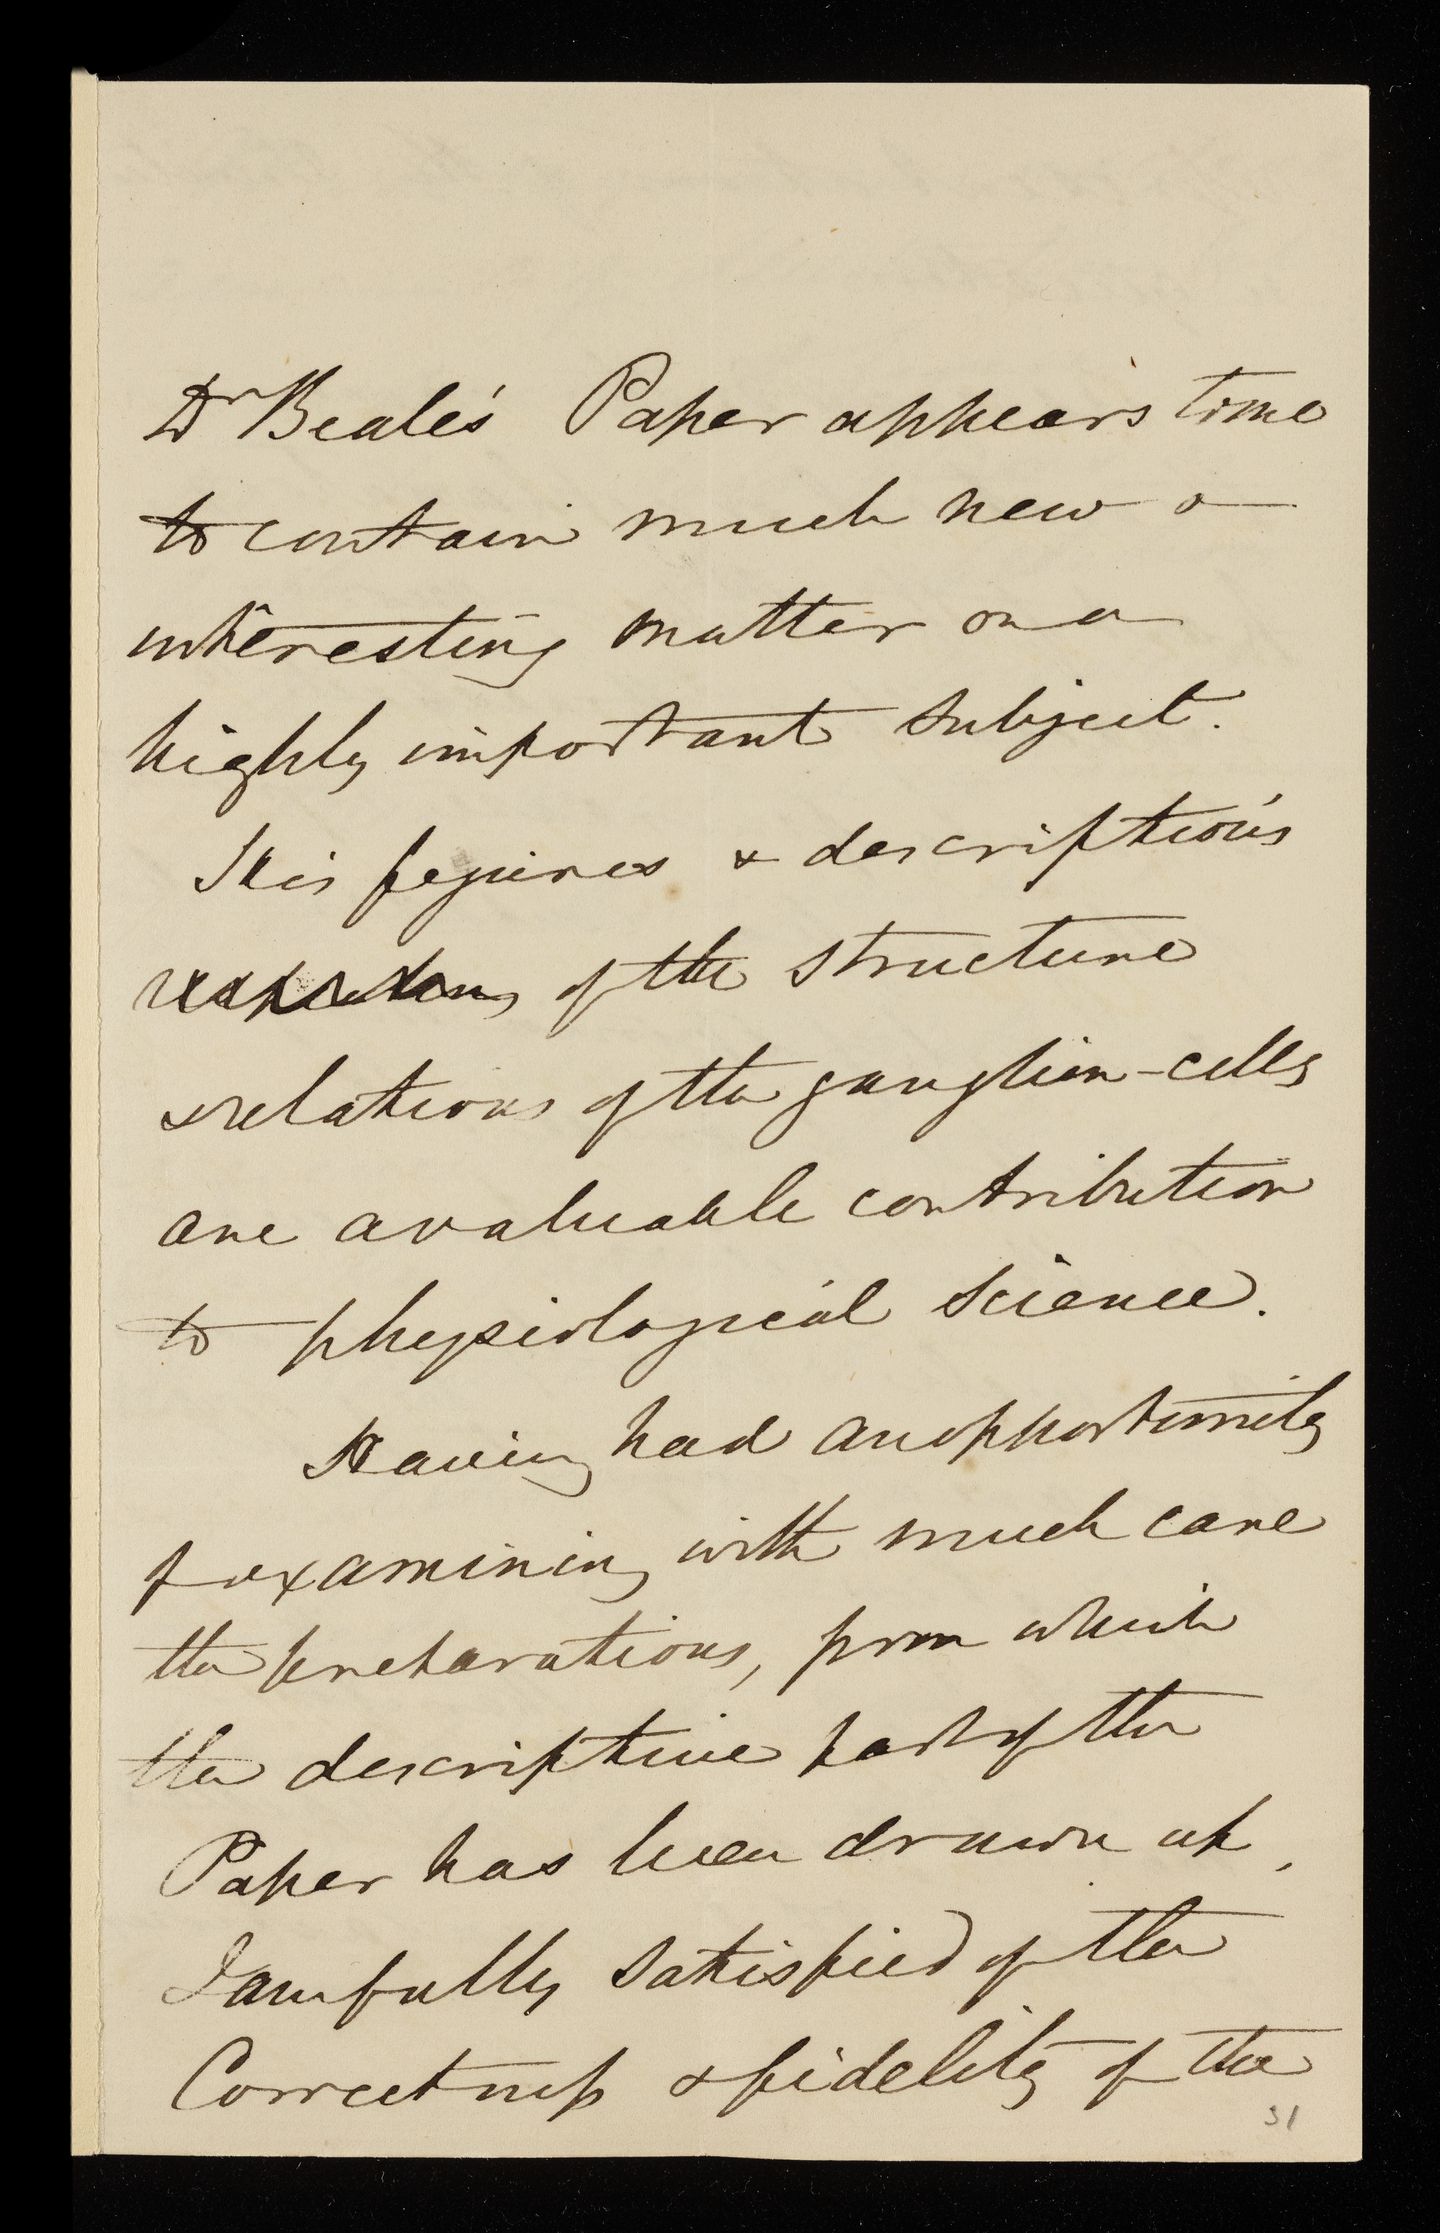 Dr Beale's Paper appears to me
to contain much new &
interesting matter on a
highly important subject.
His figures & descriptions
of the structure
& relations of the ganglion-cells
are a valuable contribution
to physiological science.
Having had an opportunity
of examining with much care
the preparations, from which
the descriptive part of the
Paper has been drawn up,
I am fully satisfied of the
Correctness & fidelity of the
31